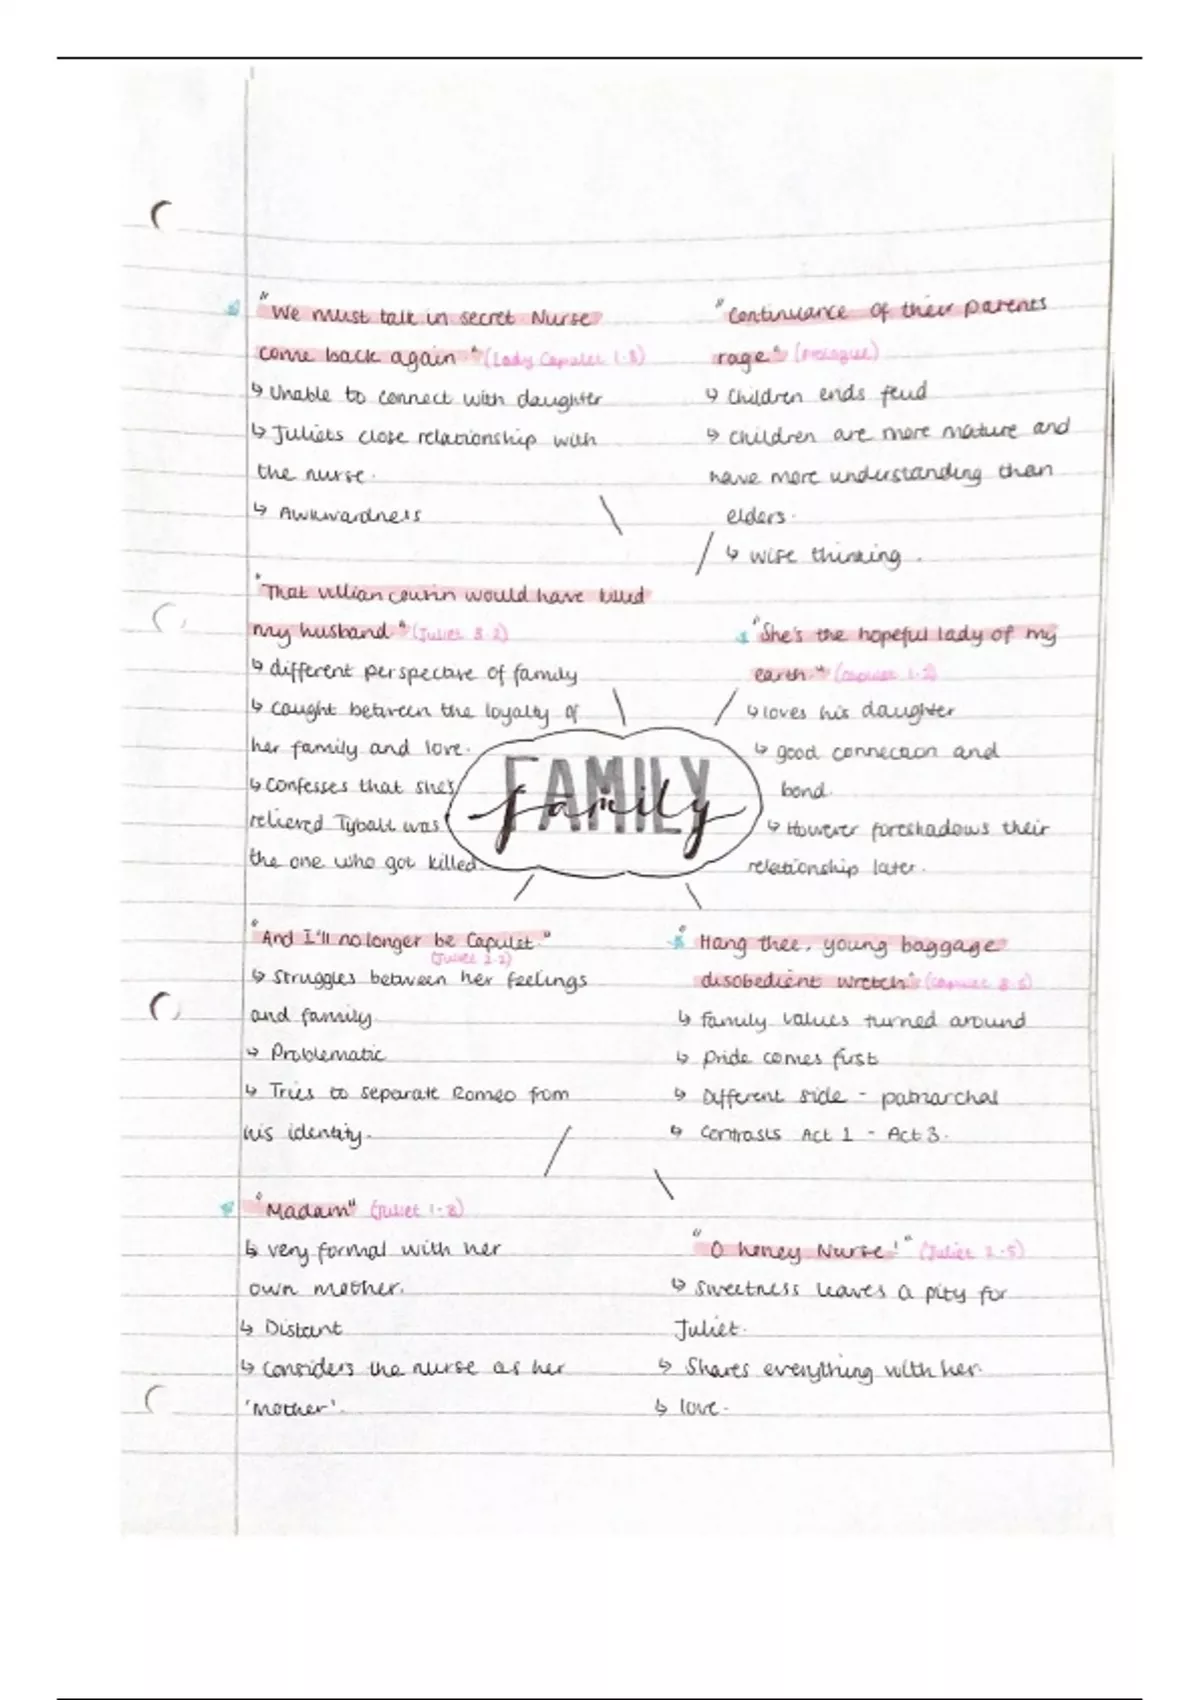 "We must talk in secret Nurse
come back again" (Lady Capulet 1.3)
↳ Unable to connect with daughter
↳ Juliets close relationship with
the nurse.
↳ Awkwardness
"Continuance of their parents
rage" (Prologue)
↳ Children ends feud
↳ Children are more mature and
have more understanding than
elders.
↳ wise thinking.
"That villian cousin would have killed
my husband" (Juliet 3.2)
↳ different perspective of family
↳ caught between the loyalty of
her family and love.
↳ Confesses that she's
relieved Tybalt was
the one who got killed.
"She's the hopeful lady of my
earth." (Capulet 1.2)
↳ loves his daughter
↳ good connection and
bond.
↳ However foreshadows their
relationship later.
FAMILY
family
"And I'll no longer be Capulet."
(Juliet 2.2)
↳ Struggles between her feelings
and family.
↳ Problematic
↳ Tries to separate Romeo from
his identity.
"Hang thee, young baggage
disobedient wretch" (Capulet 3.5)
↳ Family values turned around
↳ Pride comes first
↳ Different side - patriarchal
↳ Contrasts Act 1 - Act 3.
"Madam" (Juliet 1.3)
↳ very formal with her
own mother.
↳ Distant
↳ Considers the nurse as her
'mother'.
"O honey Nurse!" (Juliet 2.5)
↳ Sweetness leaves a pity for
Juliet.
↳ Shares everything with her.
↳ love.